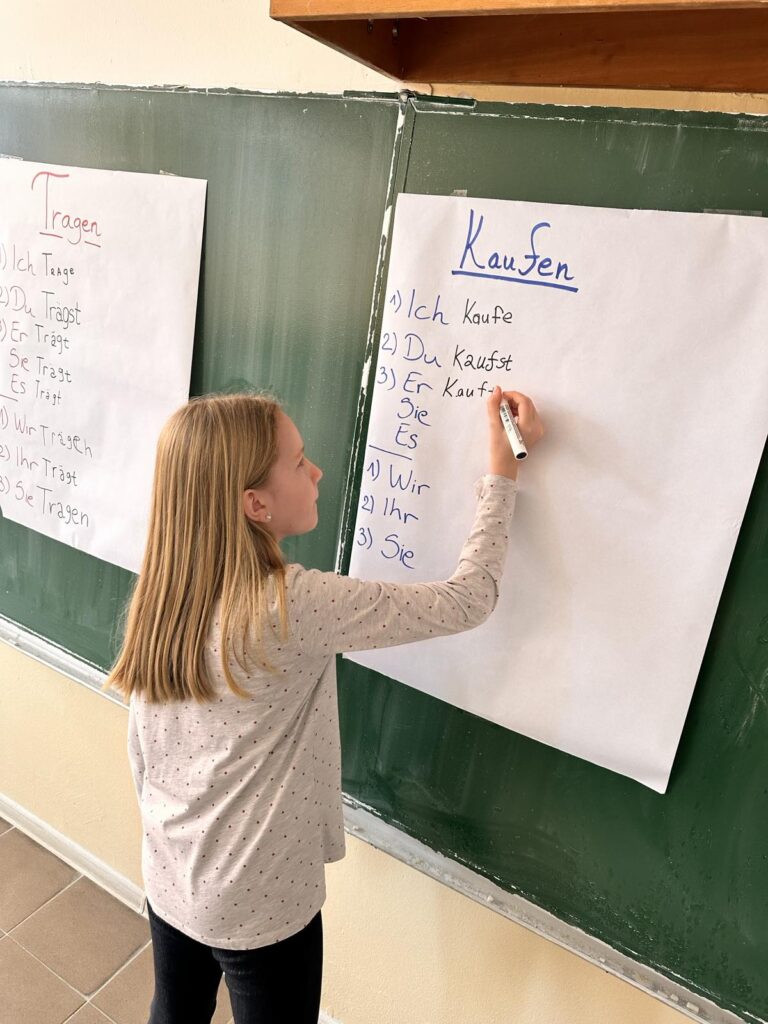 Tragen
1) Ich Trage
2) Du Trägst
3) Er Trägt
Sie Trägt
Es Trägt
1) Wir Trägen
2) Ihr Trägt
3) Sie Tragen
Kaufen
1) Ich Kaufe
2) Du Kaufst
3) Er Kauf
Sie
Es
1) Wir
2) Ihr
3) Sie